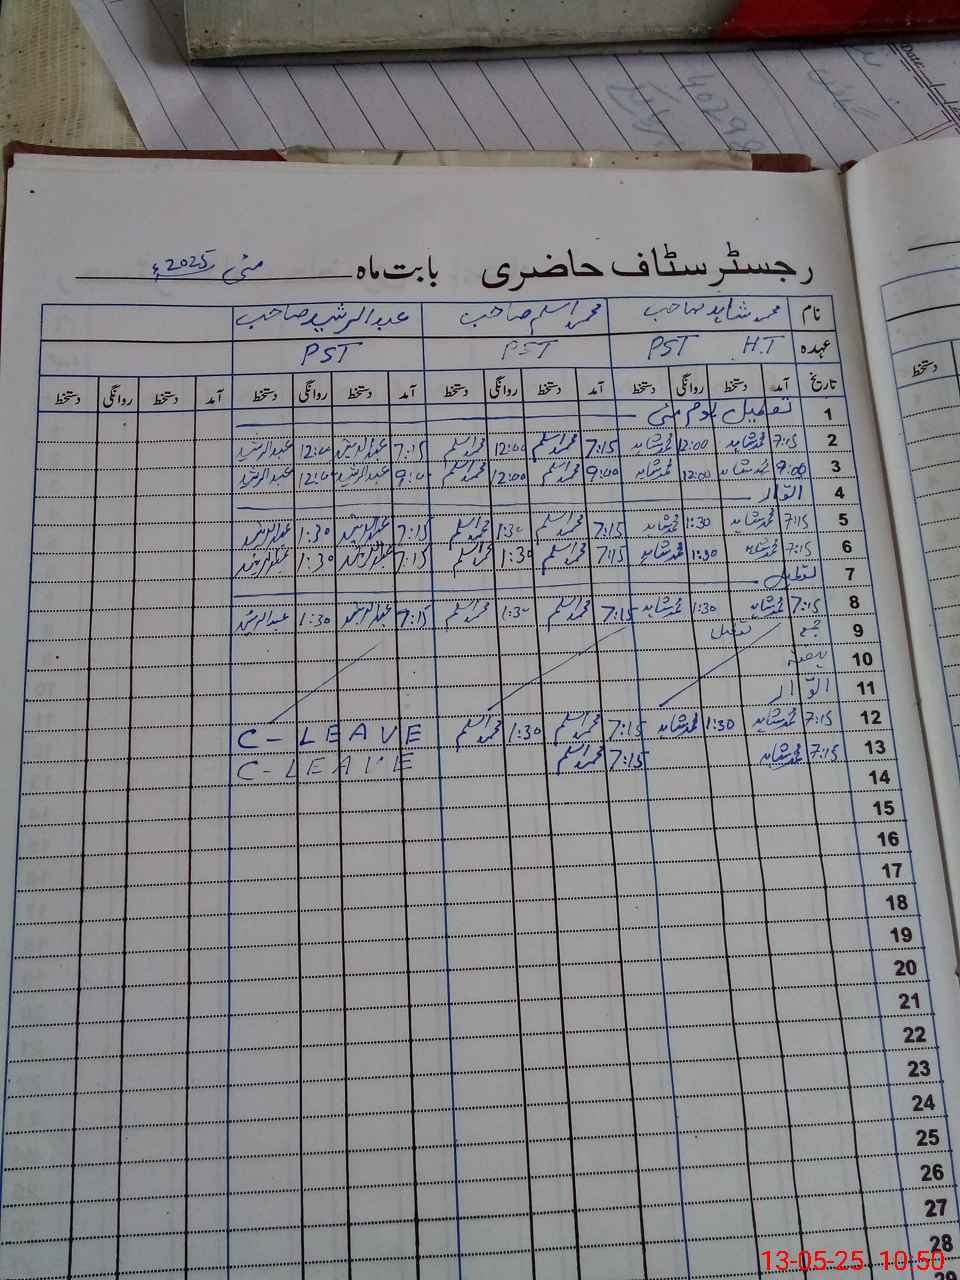 Date:
40298
رجسٹر سٹاف حاضری بابت ماہ مئی 2025ء
نام محمد شاہد صاحب محمد اسلم صاحب عبدالرشید صاحب
عہدہ H.T PST PST PST
تاریخ آمد دستخط روانگی دستخط آمد دستخط روانگی دستخط آمد دستخط روانگی دستخط آمد دستخط روانگی دستخط
1 تعطیل یوم مئی
2 7:15 محمد شاہد 12:00 محمد شاہد 7:15 محمد اسلم 12:00 محمد اسلم 7:15 عبدالرشید 12:00 عبدالرشید
3 9:00 محمد شاہد 12:00 محمد شاہد 9:00 محمد اسلم 12:00 محمد اسلم 9:00 عبدالرشید 12:00 عبدالرشید
4 اتوار
5 7:15 محمد شاہد 1:30 محمد شاہد 7:15 محمد اسلم 1:30 محمد اسلم 7:15 عبدالرشید 1:30 عبدالرشید
6 7:15 محمد شاہد 1:30 محمد شاہد 7:15 محمد اسلم 1:30 محمد اسلم 7:15 عبدالرشید 1:30 عبدالرشید
7 تعطیل
8 7:15 محمد شاہد 1:30 محمد شاہد 7:15 محمد اسلم 1:30 محمد اسلم 7:15 عبدالرشید 1:30 عبدالرشید
9 جمعہ تعطیل
10 ہفتہ
11 اتوار
12 7:15 محمد شاہد 1:30 محمد شاہد 7:15 محمد اسلم 1:30 محمد اسلم C-LEAVE
13 7:15 محمد شاہد 7:15 محمد اسلم C-LEAVE
14
15
16
17
18
19
20
21
22
23
24
25
26
27
28
29
13-05-25 10:50